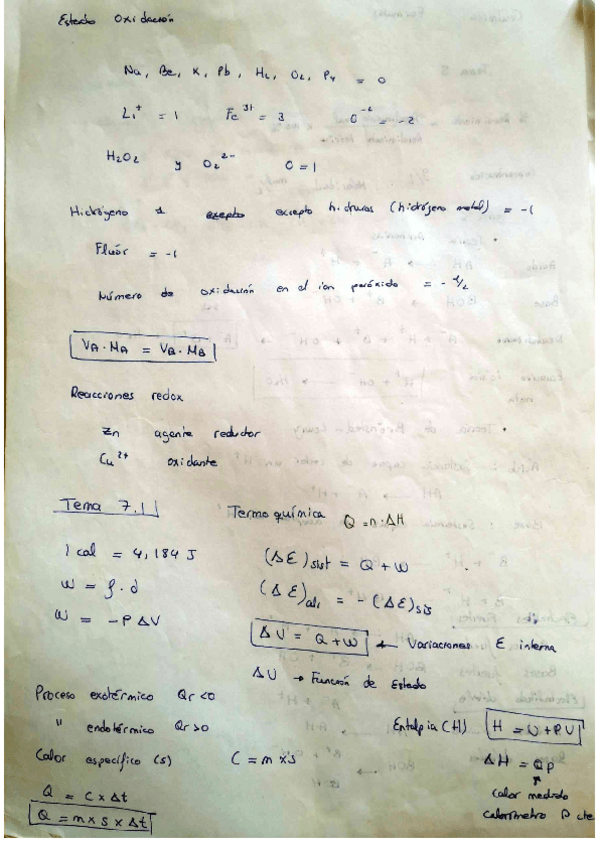 Estado Oxidación
Na, Be, K, Pb, H₂, O₂, P₄ = 0
Li⁺ = 1 Fe³⁺ = 3 O⁻² = -2
H₂O₂ y O₂²⁻ O = 1
Hidrógeno 1 excepto hidruros (hidrógeno metal) = -1
Fluór = -1
Número de oxidación en el ion peróxido = -1/2
VA · MA = VB · MB
Reacciones redox
Zn agente reductor
Cu²⁺ oxidante
Tema 7.1
Termoquímica Q = n · ΔH
1 cal = 4,184 J (ΔE)sist = Q + W
W = f · d (ΔE)alr = - (ΔE)sis
W = -P ΔV ΔU = Q + W ← Variaciones E interna
ΔU → Función de Estado
Proceso exotérmico Qr < 0
" endotérmico Qr > 0 Entalpia (H) H = U + PV
Calor específico (s) C = m x s ΔH = Qp
Q = C x Δt calor medido
Q = m x s x Δt calorímetro P cte